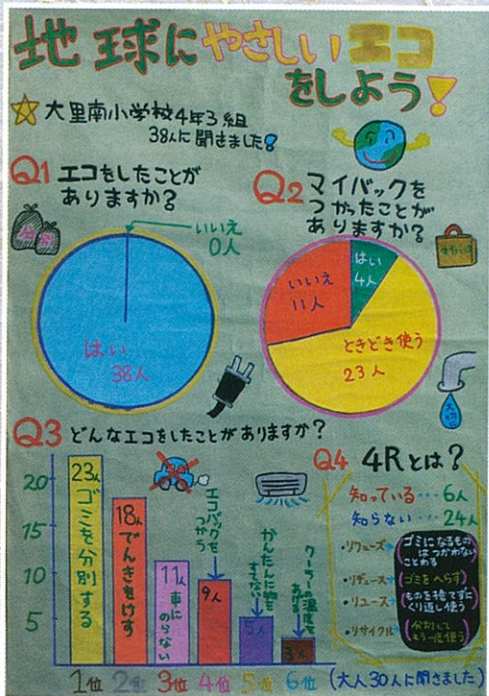 地球にやさしいエコ
をしよう!
大里南小学校4年3組
38人に聞きました!
Q1 エコをしたことが
ありますか?
いいえ
0人
はい
38人
Q2 マイバックを
つかったことが
ありますか?
はい
4人
いいえ
11人
ときどき使う
23人
Q3 どんなエコをしたことがありますか?
20
15
10
5
23人 ゴミを分別する
18人 でんきをけす
11人 車にのらない
エコバックをつかう
9人
かんたんに物をすてない
5人
クーラーの温度をあげる
3人
1位 2位 3位 4位 5位 6位
Q4 4Rとは?
知っている…6人
知らない…24人
・リフューズ→
ゴミになるもの
はつかわない
ことわる
・リデュース→ゴミをへらす
・リユース→
ものを捨てずに
くり返し使う
・リサイクル→
分別して
もう一度使う
(大人30人に聞きました)